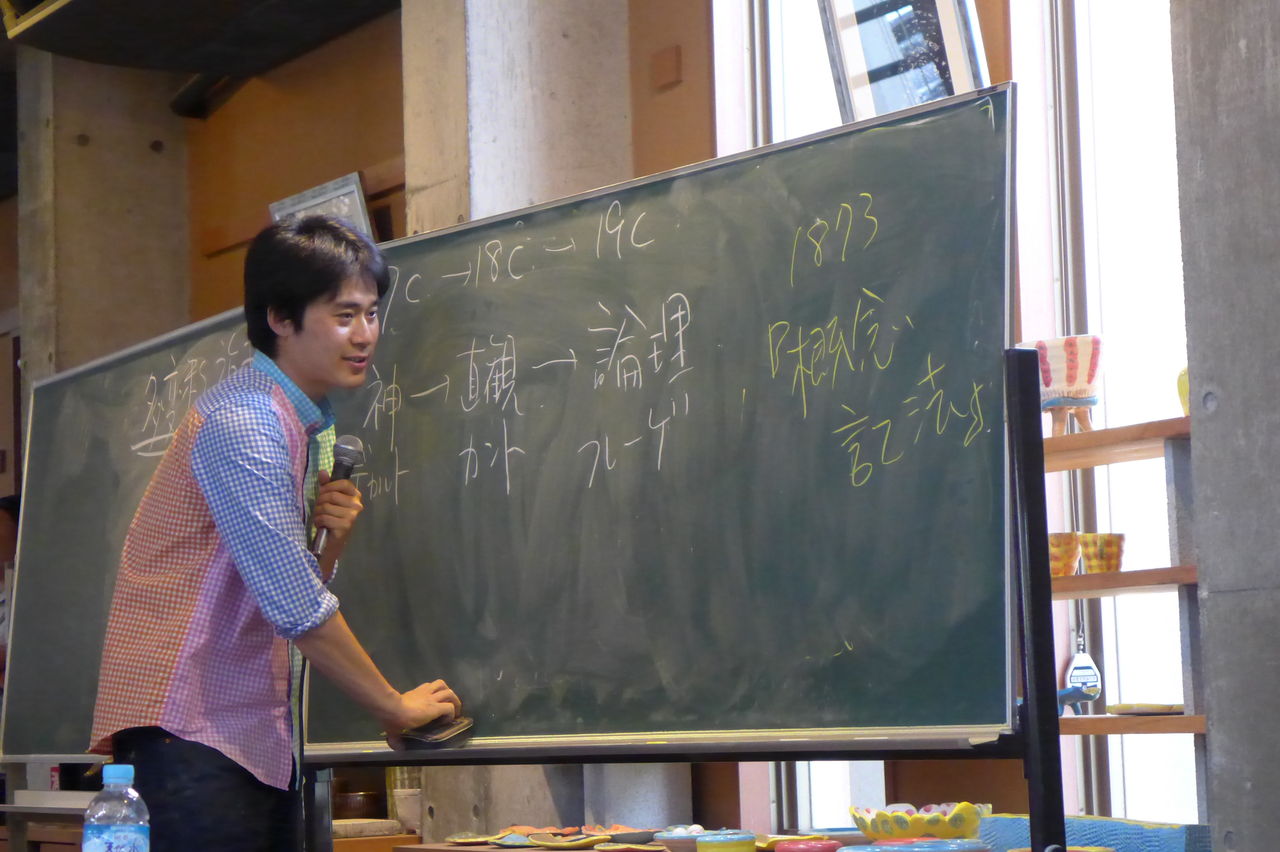 7C. → 18C. → 19C
神 → 直観 → 論理
デカルト カント フレーゲ
1873
『概念
記法』